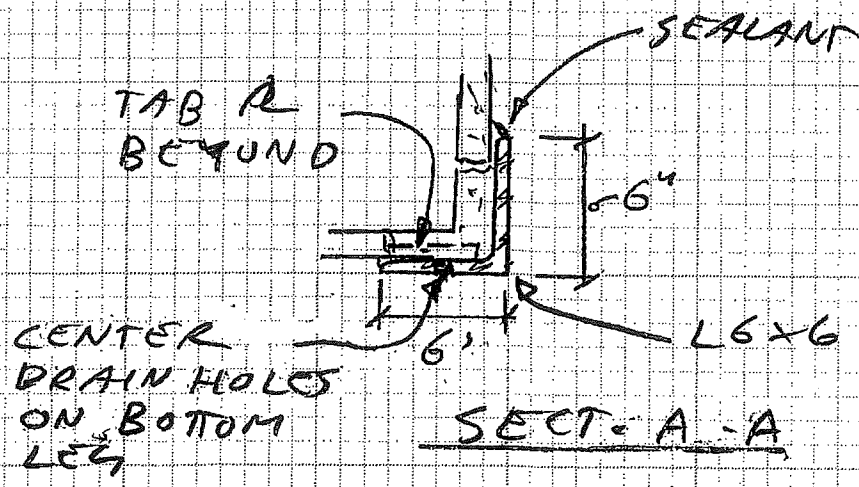 SEALANT
TAB PL
BEYOND
6"
CENTER
DRAIN HOLES
ON BOTTOM
LEG
6"
L6×6
SECT. A-A